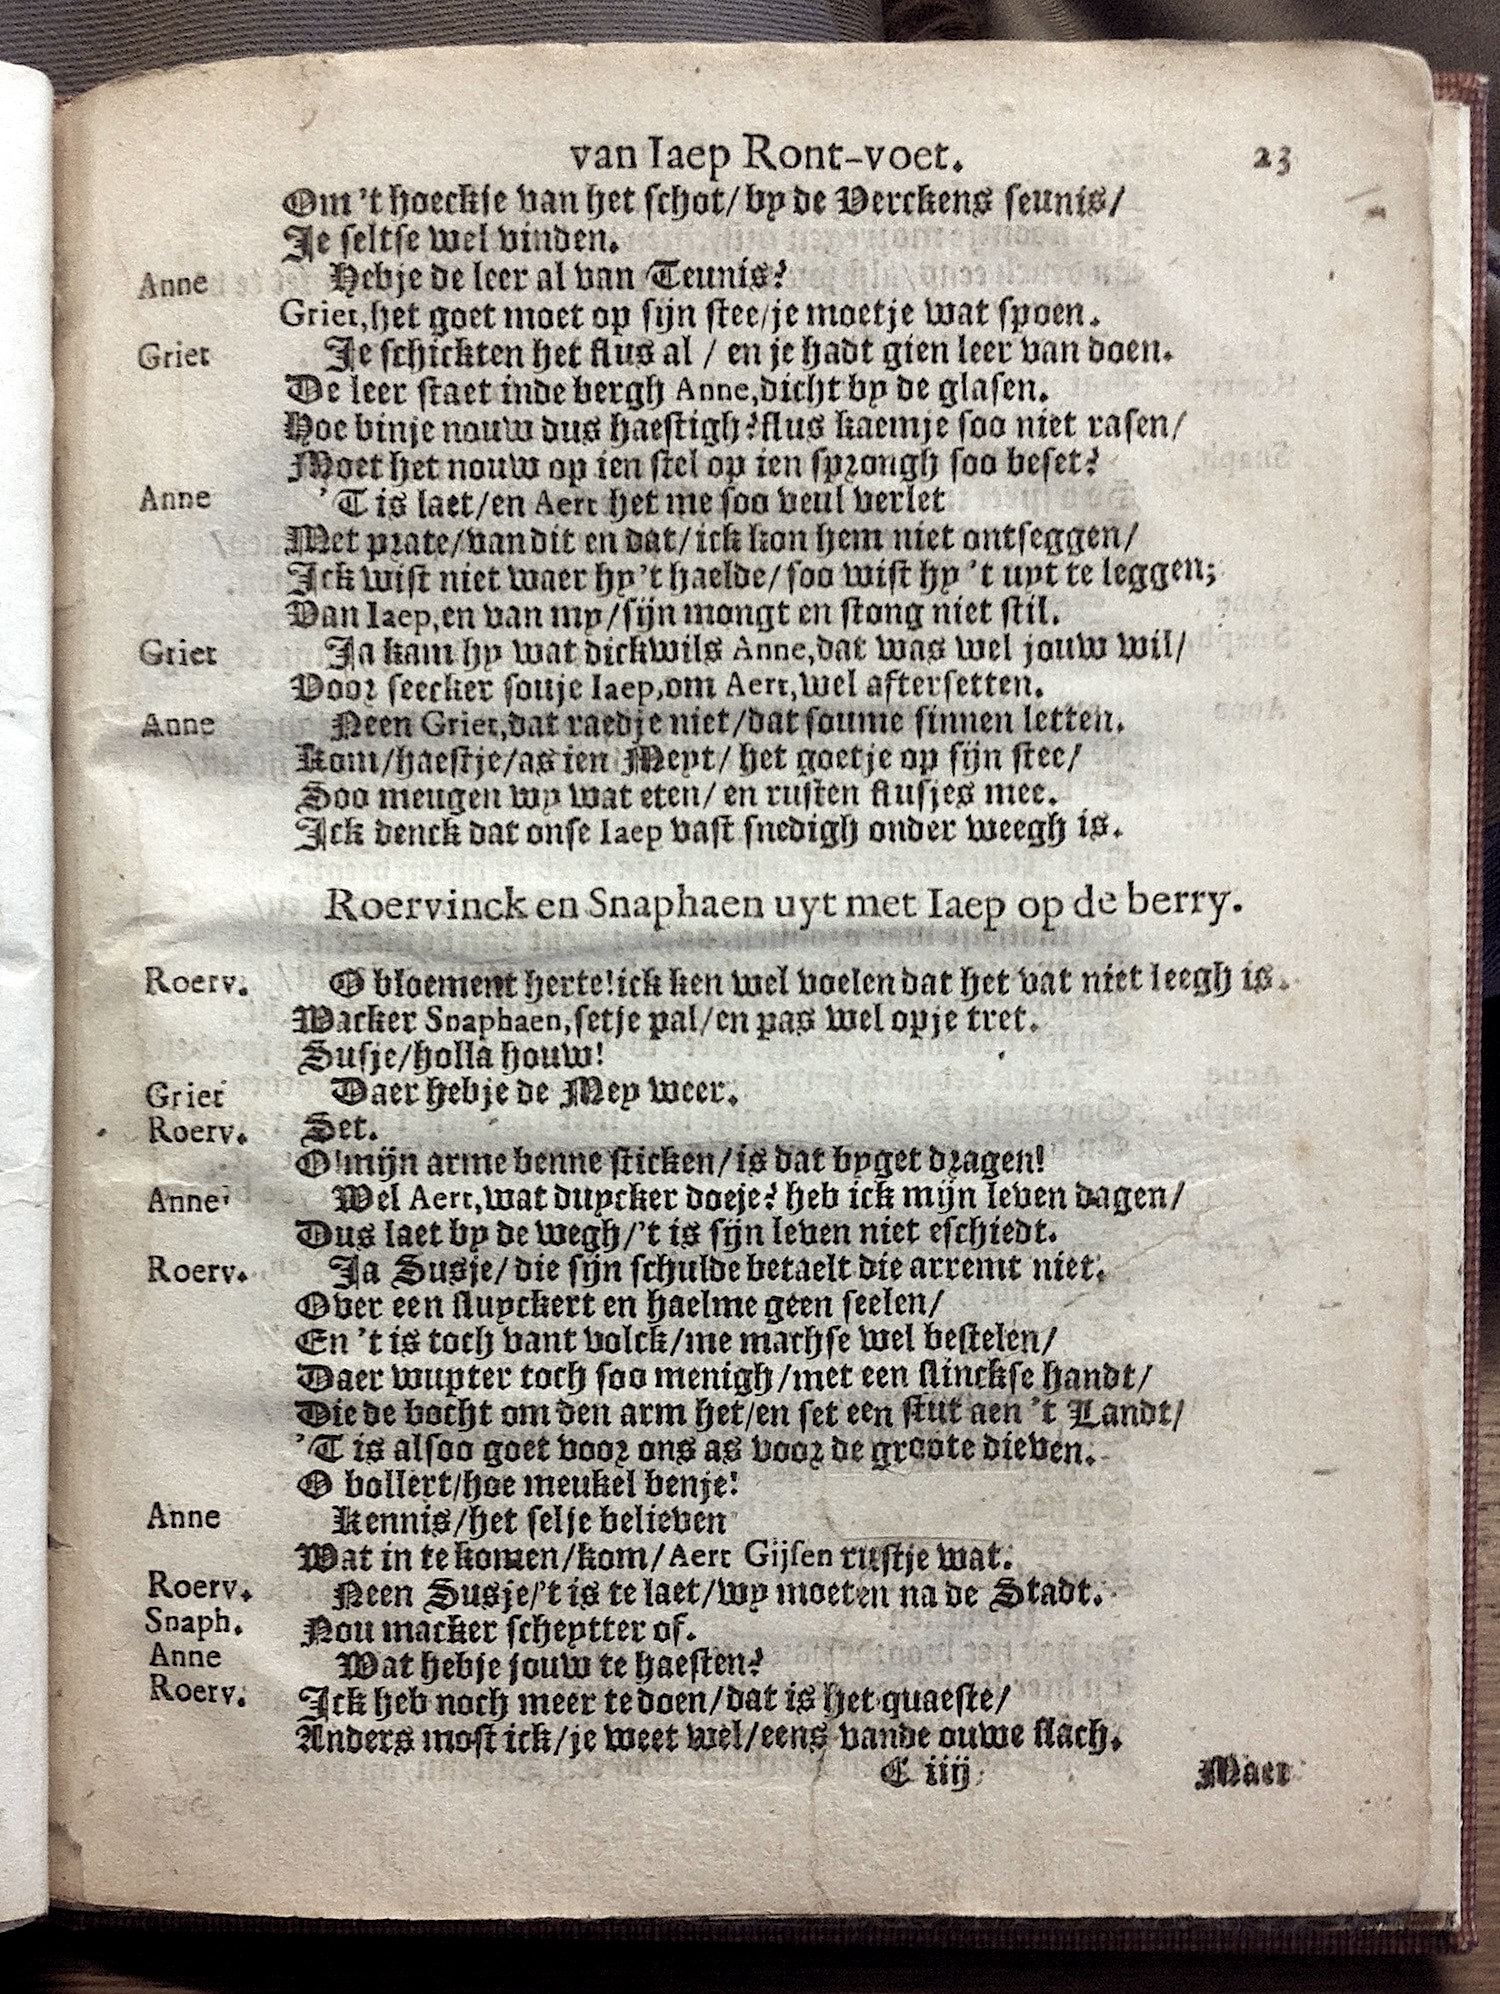 van Iaep Ront-voet. 23
Om 't hoeckje van het schot/ by de Verckens seunis/
Je seltse wel vinden.
Anne Hebje de leer al van Teunis?
Griet, het goet moet op sijn stee/je moetje wat spoen.
Griet Je schickten het flus al / en je hadt gien leer van doen.
De leer staet inde bergh Anne, dicht by de glasen.
Hoe binje nouw dus haestigh? flus kaemje soo niet rasen/
Moet het nouw op ien stel op ien sprongh soo beset?
Anne 'T is laet/en Aert het me soo veul verlet
Met prate/van dit en dat/ick kon hem niet ontseggen/
Ick wist niet waer hy 't haelde/soo wist hy 't uyt te leggen;
Van Iaep, en van my/sijn mongt en stong niet stil.
Griet Ja kam hy wat dickwils Anne, dat was wel jouw wil/
Voor seecker souje Iaep, om Aert, wel aftersetten.
Anne Neen Griet, dat raedje niet/dat soume sinnen letten.
Kom/haestje/as ien Meyt/ het goetje op sijn stee/
Soo meugen wy wat eten/ en rusten flusjes mee.
Ick denck dat onse Iaep vast snedigh onder weegh is.
Roervinck en Snaphaen uyt met Iaep op de berry.
Roerv. O bloement herte! ick ken wel voelen dat het vat niet leegh is.
Wacker Snaphaen, setje pal/en pas wel opje tret.
Susje/holla houw!
Griet Daer hebje de Mey weer.
Roerv. Set.
O! mijn arme benne sticken/is dat byget dragen!
Anne Wel Aert, wat duycker doeje? heb ick mijn leven dagen/
Dus laet by de wegh/'t is sijn leven niet eschiedt.
Roerv. Ja Susje/ die sijn schulde betaelt die arremt niet.
Over een fluyckert en haelme geen seelen/
En 't is toch vant volck/me machse wel bestelen/
Daer wupter toch soo menigh/met een flinckse handt/
Die de bocht om den arm het/en set een stut aen 't Landt/
'T is alsoo goet voor ons as voor de groote dieven.
O bollert/hoe meukel benje!
Anne Kennis/het selje believen
Wat in te komen/kom/Aert Gijsen rustje wat.
Roerv. Neen Susje/'t is te laet/wy moeten na de Stadt.
Snaph. Nou macker scheytter of.
Anne Wat hebje jouw te haesten?
Roerv. Ick heb noch meer te doen/dat is het quaeste/
Anders most ick/je weet wel/eens vande ouwe slach.
C iiij Maer